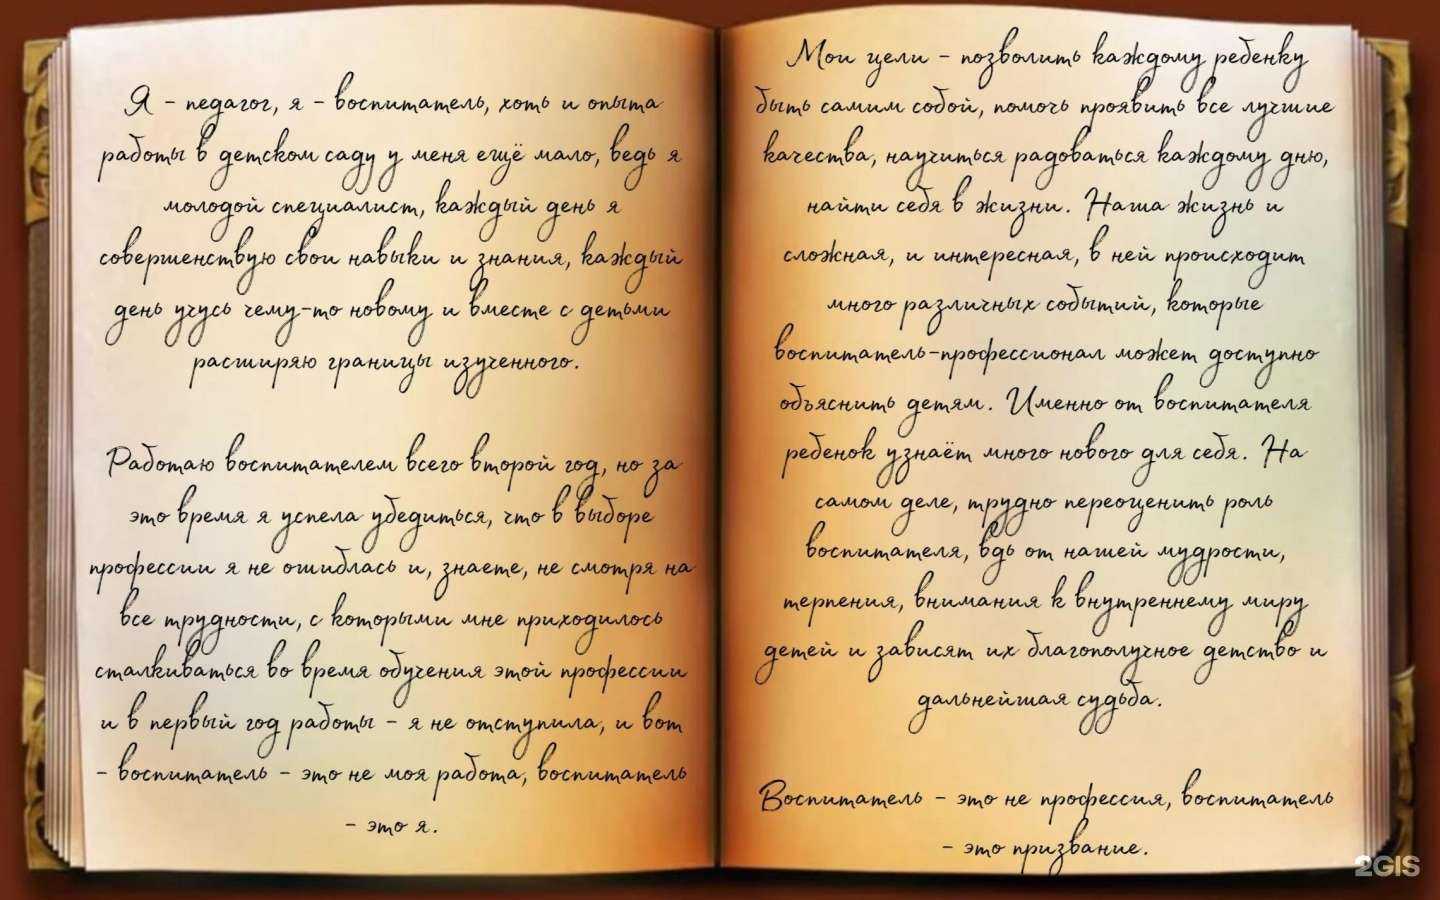 Я – педагог, я – воспитатель, хоть и опыта
работы в детском саду у меня ещё мало, ведь я
молодой специалист, каждый день я
совершенствую свои навыки и знания, каждый
день учусь чему-то новому и вместе с детьми
расширяю границы изученного.
Работаю воспитателем всего второй год, но за
это время я успела убедиться, что в выборе
профессии я не ошиблась и, знаете, не смотря на
все трудности, с которыми мне приходилось
сталкиваться во время обучения этой профессии
и в первый год работы – я не отступила, и вот
– воспитатель – это не моя работа, воспитатель
– это я.
Мои цели – позволить каждому ребенку
быть самим собой, помочь проявить все лучшие
качества, научиться радоваться каждому дню,
найти себя в жизни. Наша жизнь и
сложная, и интересная, в ней происходит
много различных событий, которые
воспитатель-профессионал может доступно
объяснить детям. Именно от воспитателя
ребенок узнаёт много нового для себя. На
самом деле, трудно переоценить роль
воспитателя, вдь от нашей мудрости,
терпения, внимания к внутреннему миру
детей и зависят их благополучное детство и
дальнейшая судьба.
Воспитатель – это не профессия, воспитатель
– это призвание.
2GIS